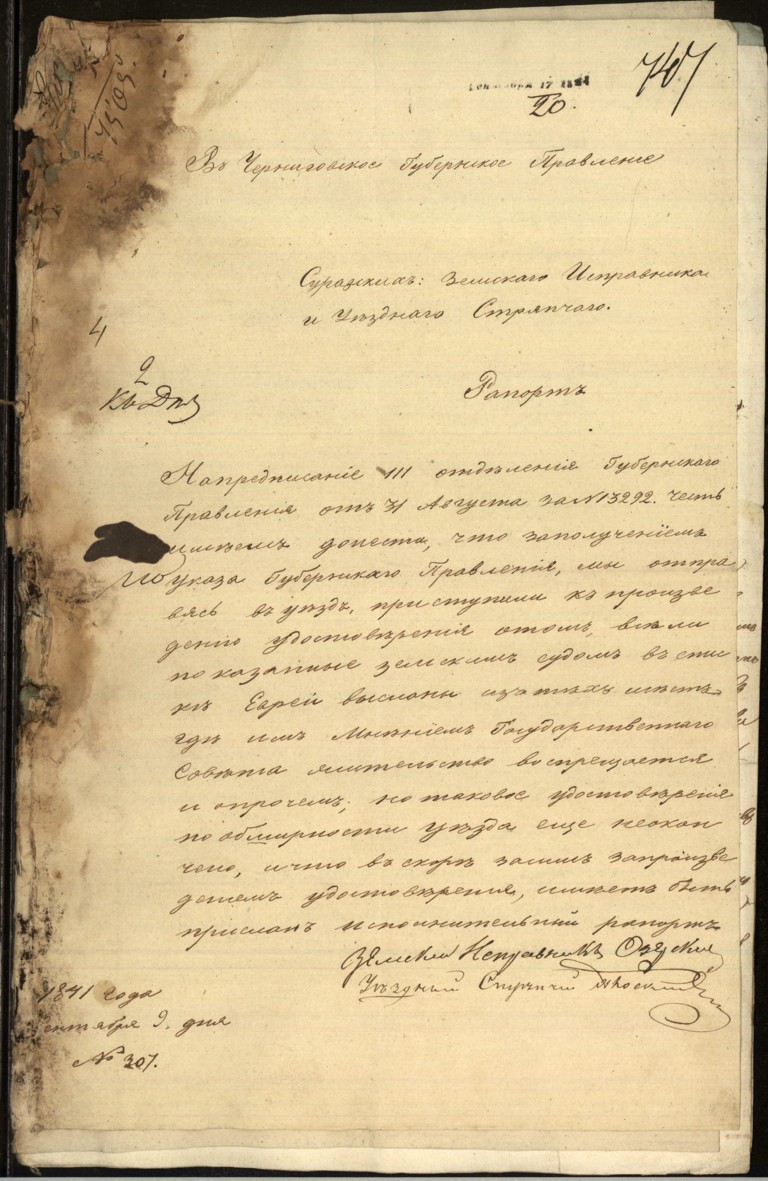 747
Сентября 17 1841
20.
Въ Черниговское Губернское Правленіе
Суражскихъ: Земскаго Исправника
и Уѣзднаго Стряпчаго.
4
2
Рапортъ
Напредписаніе III отдѣленія Губернскаго
Правленія отъ 31 Августа за N 13292. честь
имѣемъ донести, что заполученіемъ
указа Губернскаго Правленія, мы отпра
вясь въ уѣздъ, приступили къ произве
денію удостовѣренія отомъ, всѣ ли
показанные земскимъ судомъ въ спи
скѣ Евреи высланы изътѣхъ мѣстъ
гдѣ имъ Мнѣніемъ Государственнаго
Совѣта жительство воспрещается
и опрочемъ; но таковое удостовѣреніе
по обширности уѣзда еще неокон
чено, и что въ скорѣ засимъ запроизве
деніемъ удостовѣренія, имѣетъ быть
присланъ исполнительный рапортъ
Земскій Исправникъ
Уѣздный Стряпчій
1841 года
сентября 9. дня
№ 307.